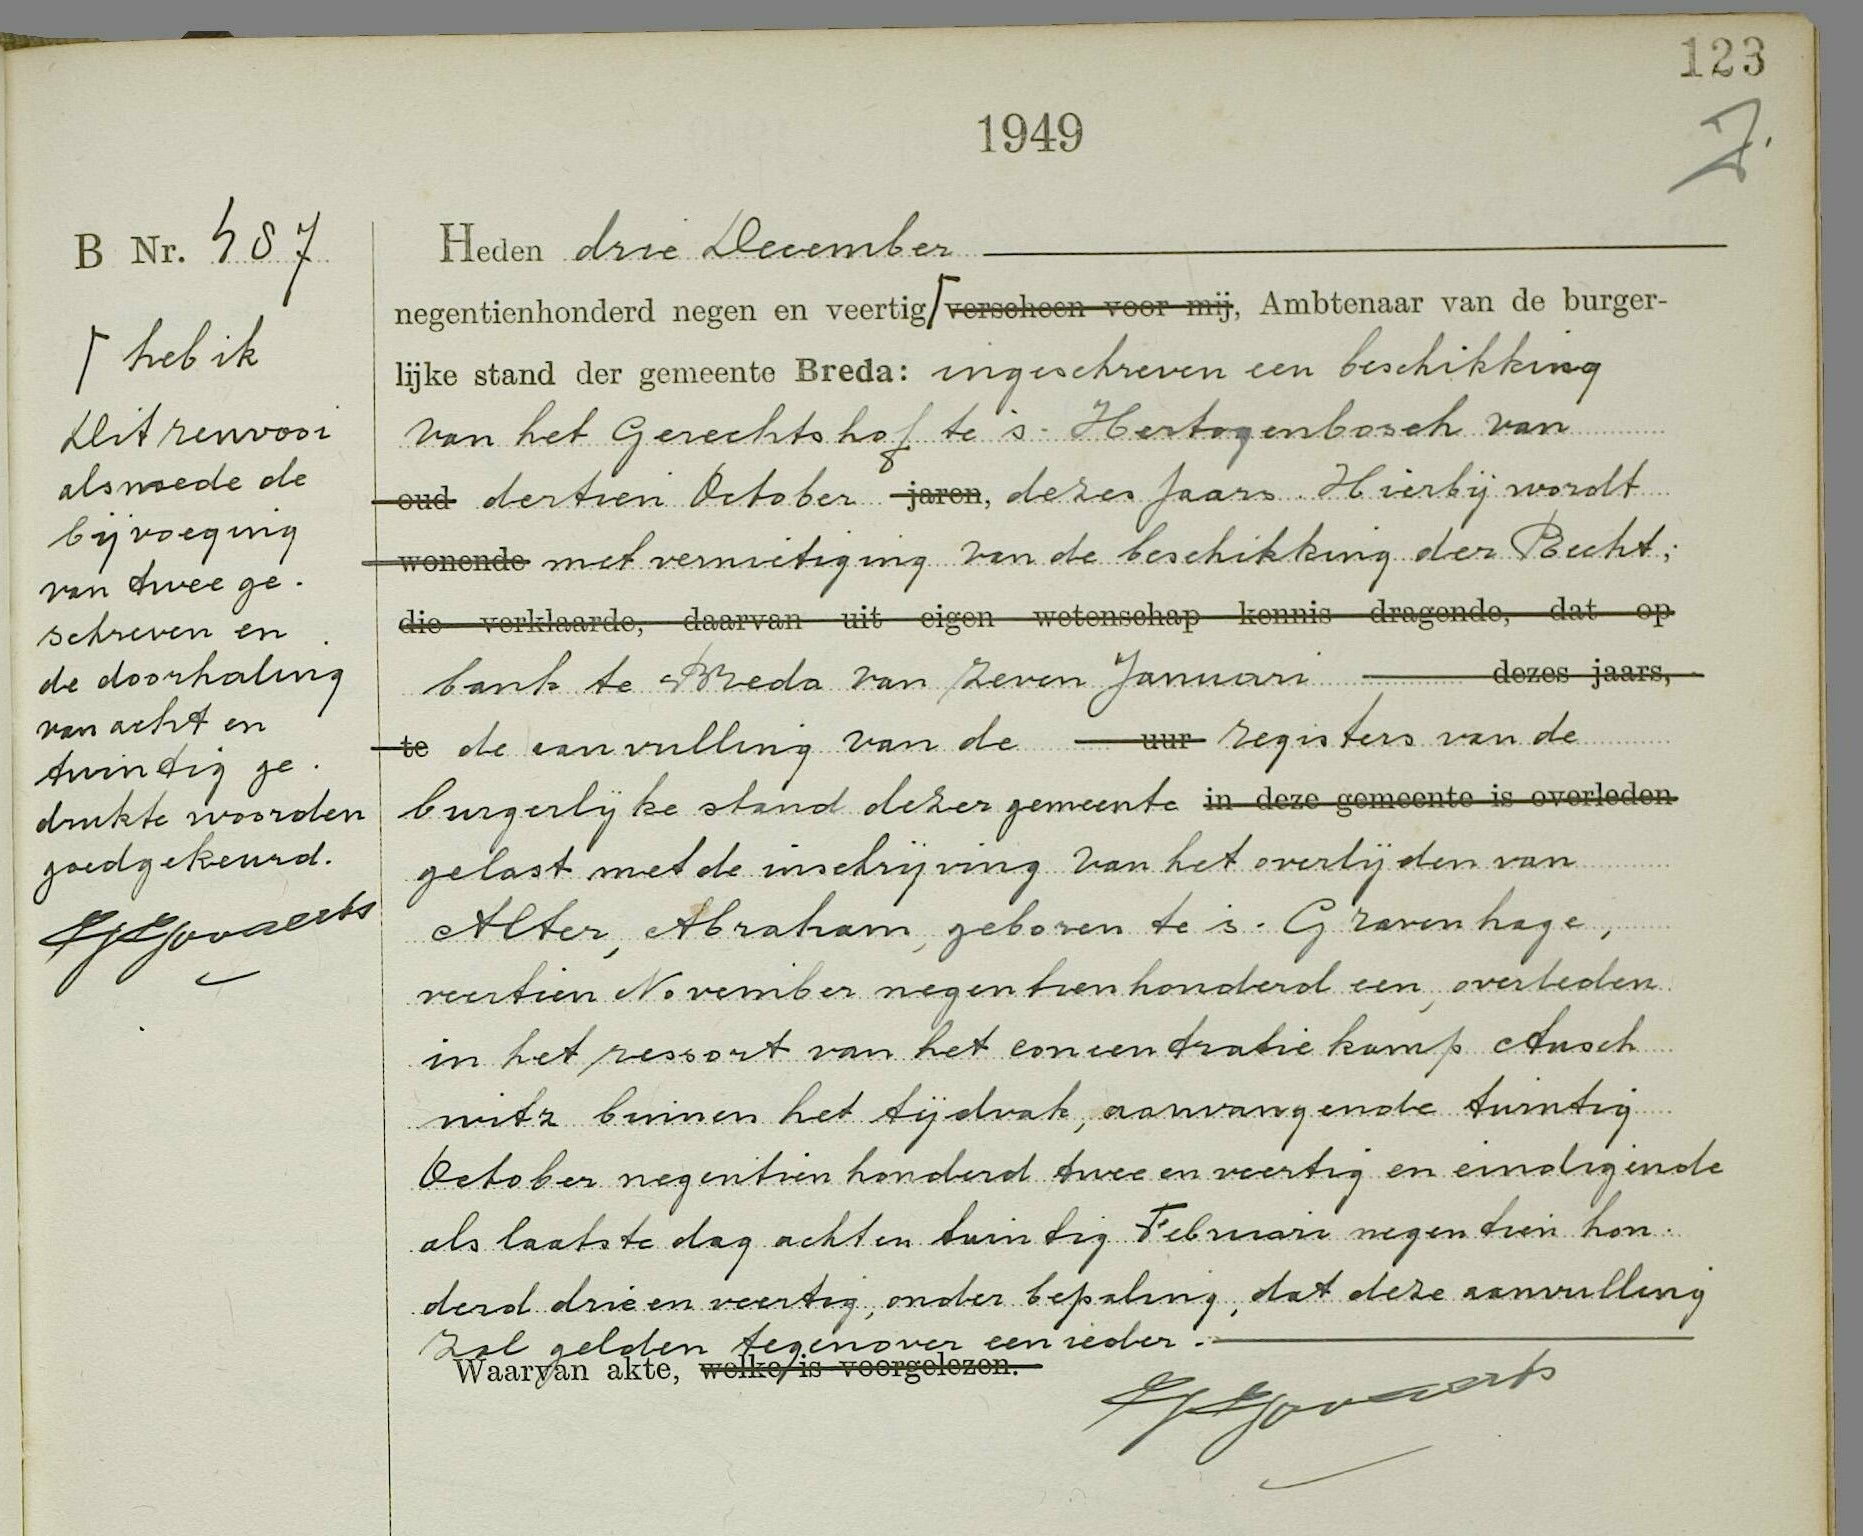 123
1949
J.
B Nr. 487
Heden drie December
negentienhonderd negen en veertig ⌈ verscheen voor mij, Ambtenaar van de burger-
lijke stand der gemeente Breda: ingeschreven een beschikking
van het Gerechtshof te 's-Hertogenbosch van
oud dertien October jaren, dezes jaars. Hierbij wordt
wonende met vernietiging van de beschikking der Recht,-
die verklaarde, daarvan uit eigen wetenschap kennis dragende, dat op
bank te Breda van zeven Januari dezes jaars,
te de aanvulling van de uur registers van de
burgerlijke stand dezer gemeente in deze gemeente is overleden
gelast met de inschrijving van het overlijden van
Alter, Abraham, geboren te 's-Gravenhage,
veertien November negentienhonderd een, overleden
in het ressort van het concentratiekamp Ausch
witz binnen het tijdvak, aanvangende twintig
October negentienhonderd twee en veertig en eindigende
als laatste dag acht en twintig Februari negentien hon-
derd drie en veertig, onder bepaling, dat deze aanvulling
zal gelden tegenover een ieder.
Waarvan akte, welke is voorgelezen.
⌈ heb ik
Dit renvooi
alsmede de
bijvoeging
van twee ge-
schreven en
de doorhaling
van acht en
twintig ge-
drukte woorden
goedgekeurd.
Govaerts
Govaerts